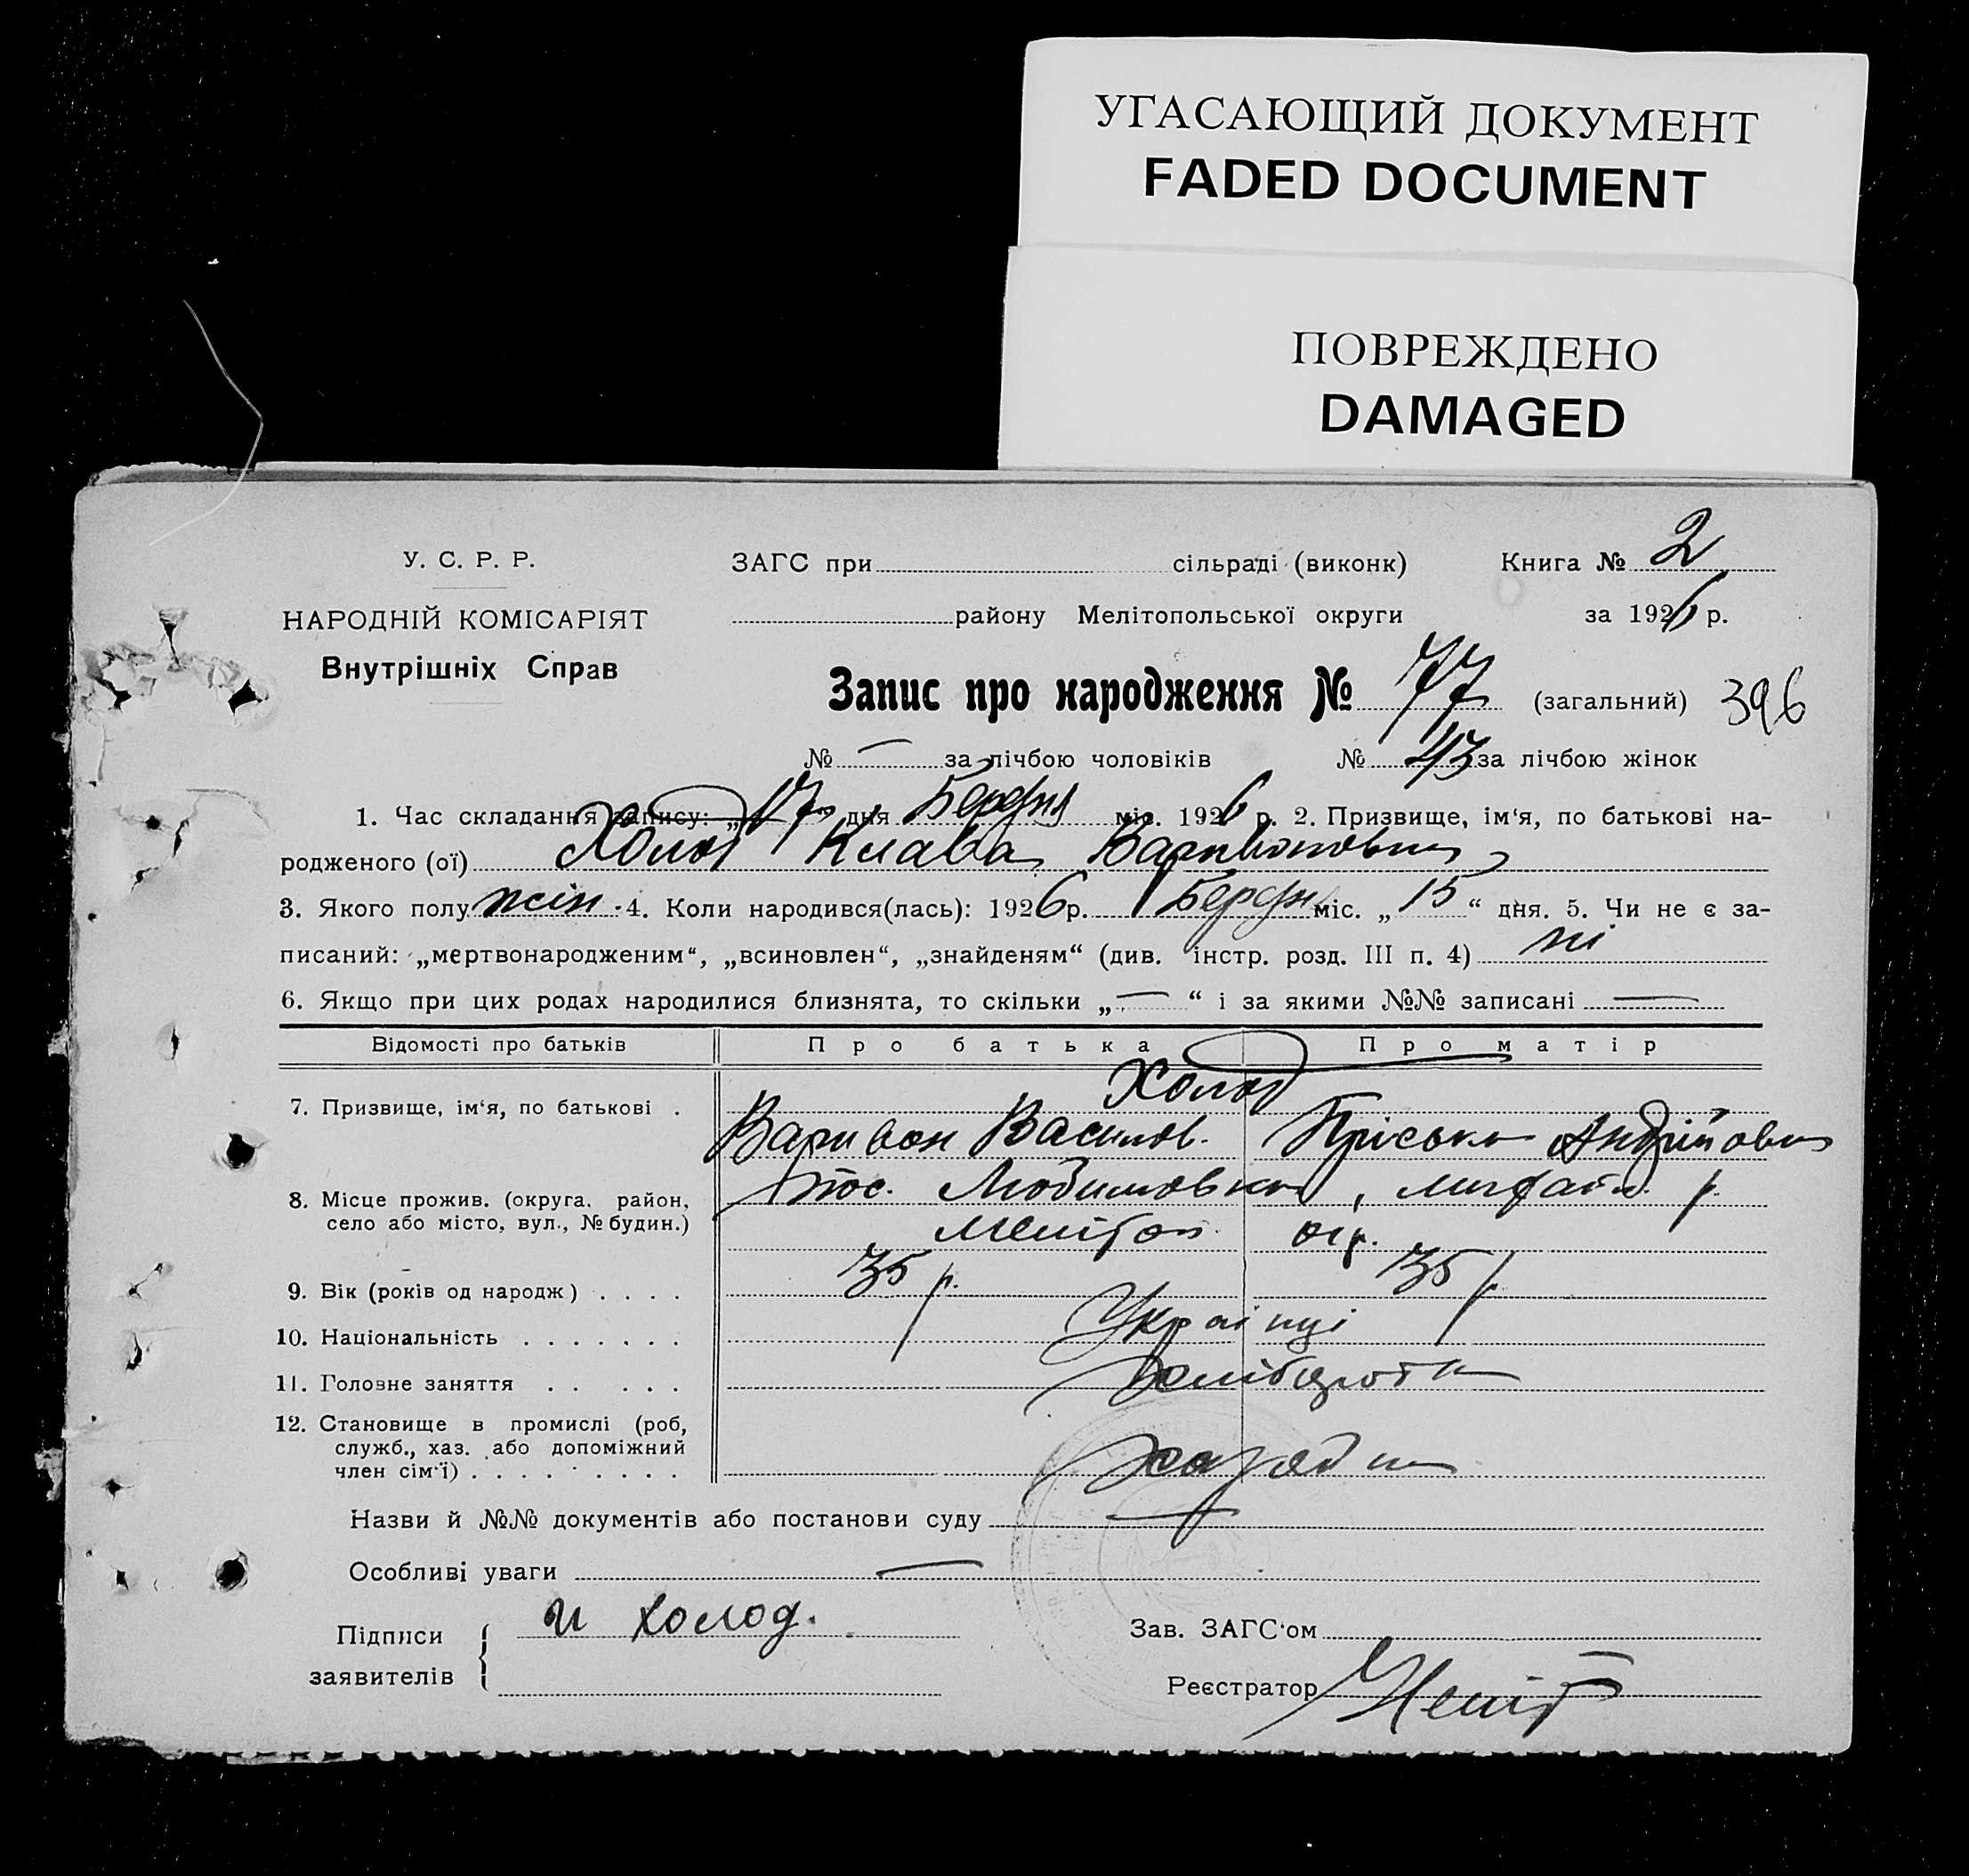 УГАСАЮЩИЙ ДОКУМЕНТ
FADED DOCUMENT
ПОВРЕЖДЕНО
DAMAGED
У. С. Р. Р.
НАРОДНІЙ КОМІСАРІЯТ
Внутрішніх Справ
ЗАГС при сільраді (виконк) Книга № 2
району Мелітопольської округи за 1926 р.
Запис про народження № 77 (загальний) 396
№ — за лічбою чоловіків № 43 за лічбою жінок
1. Час складання запису: „17“ дня Березня міс. 1926 р. 2. Призвище, ім'я, по батькові на-
родженого (ої) Холод Клава Варивоновна
3. Якого полу жін. 4. Коли народився(лась): 1926 р. Березня міс. „15“ дня. 5. Чи не є за-
писаний: „мертвонародженим“, „всиновлен“, „знайденям“ (див. інстр. розд. III п. 4) ні
6. Якщо при цих родах народилися близнята, то скільки „—“ і за якими №№ записані —
Відомості про батьків Про батька Про матір
7. Призвище, ім'я, по батькові . Холод
Варивон Василов. Пріська Андрійовна
8. Місце прожив. (округа, район, село або місто, вул., № будин.) пос. Любимовка, р.
Меліtоп. окр.
9. Вік (років од народж) . . . . 35 р. 35 р.
10. Національність . . . . . . . Українці
11. Головне заняття . . . . . Хліборобт
12. Становище в промислі (роб,
служб., хаз. або допоміжний
член сім'ї) . . . . . . . . .
Назви й №№ документів або постанови суду —
Особливі уваги —
Підписи заявителів и холод.
Зав. ЗАГС'ом
Реєстратор